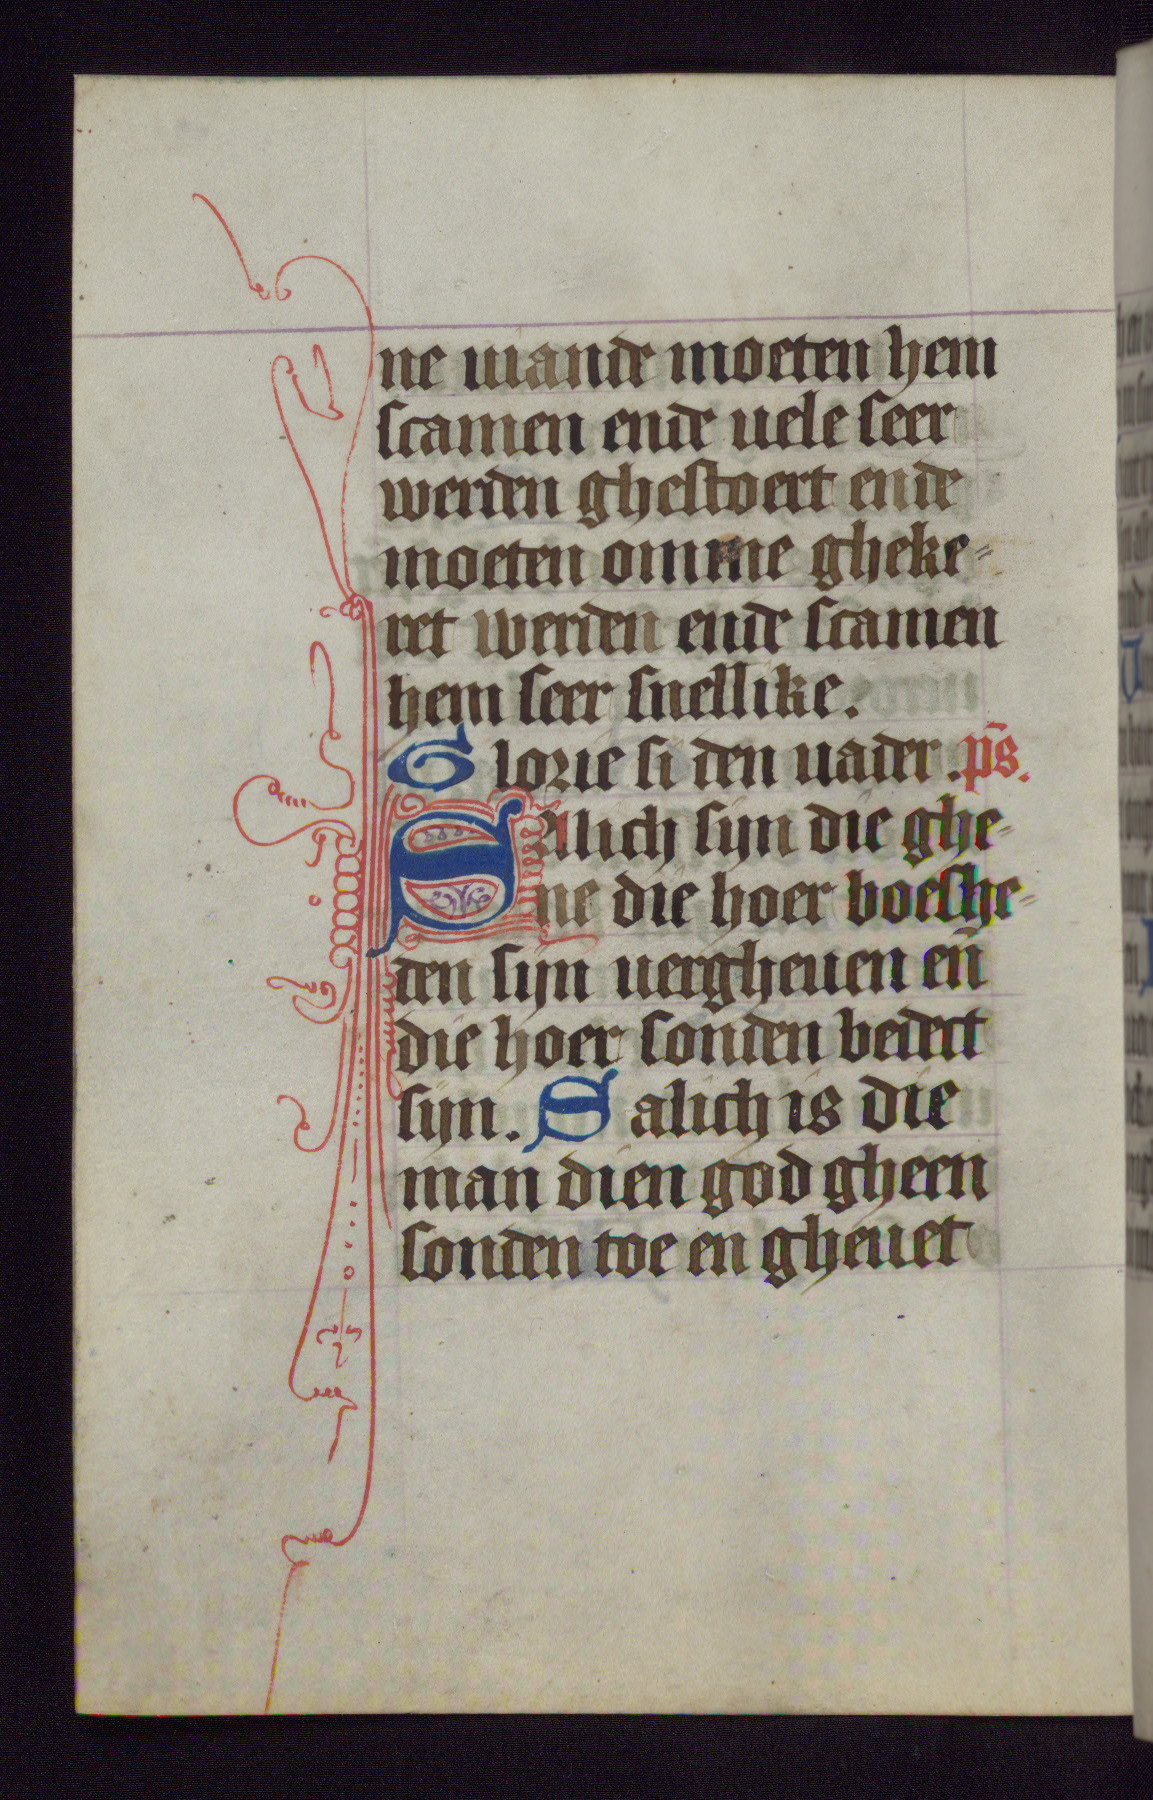 ne uiande moeten hem
scamen ende uele seer
werden ghestoert ende
moeten omme gheke-
ret werden ende scamen
hem seer snellike.
Glorie si den uader. ps̄.
Salich sijn die ghe-
ne die hoer boeshe-
den sijn uergheuen en̄
die hoer sonden bedect
sijn. Salich is die
man dien god gheen
sonden toe en gheuet